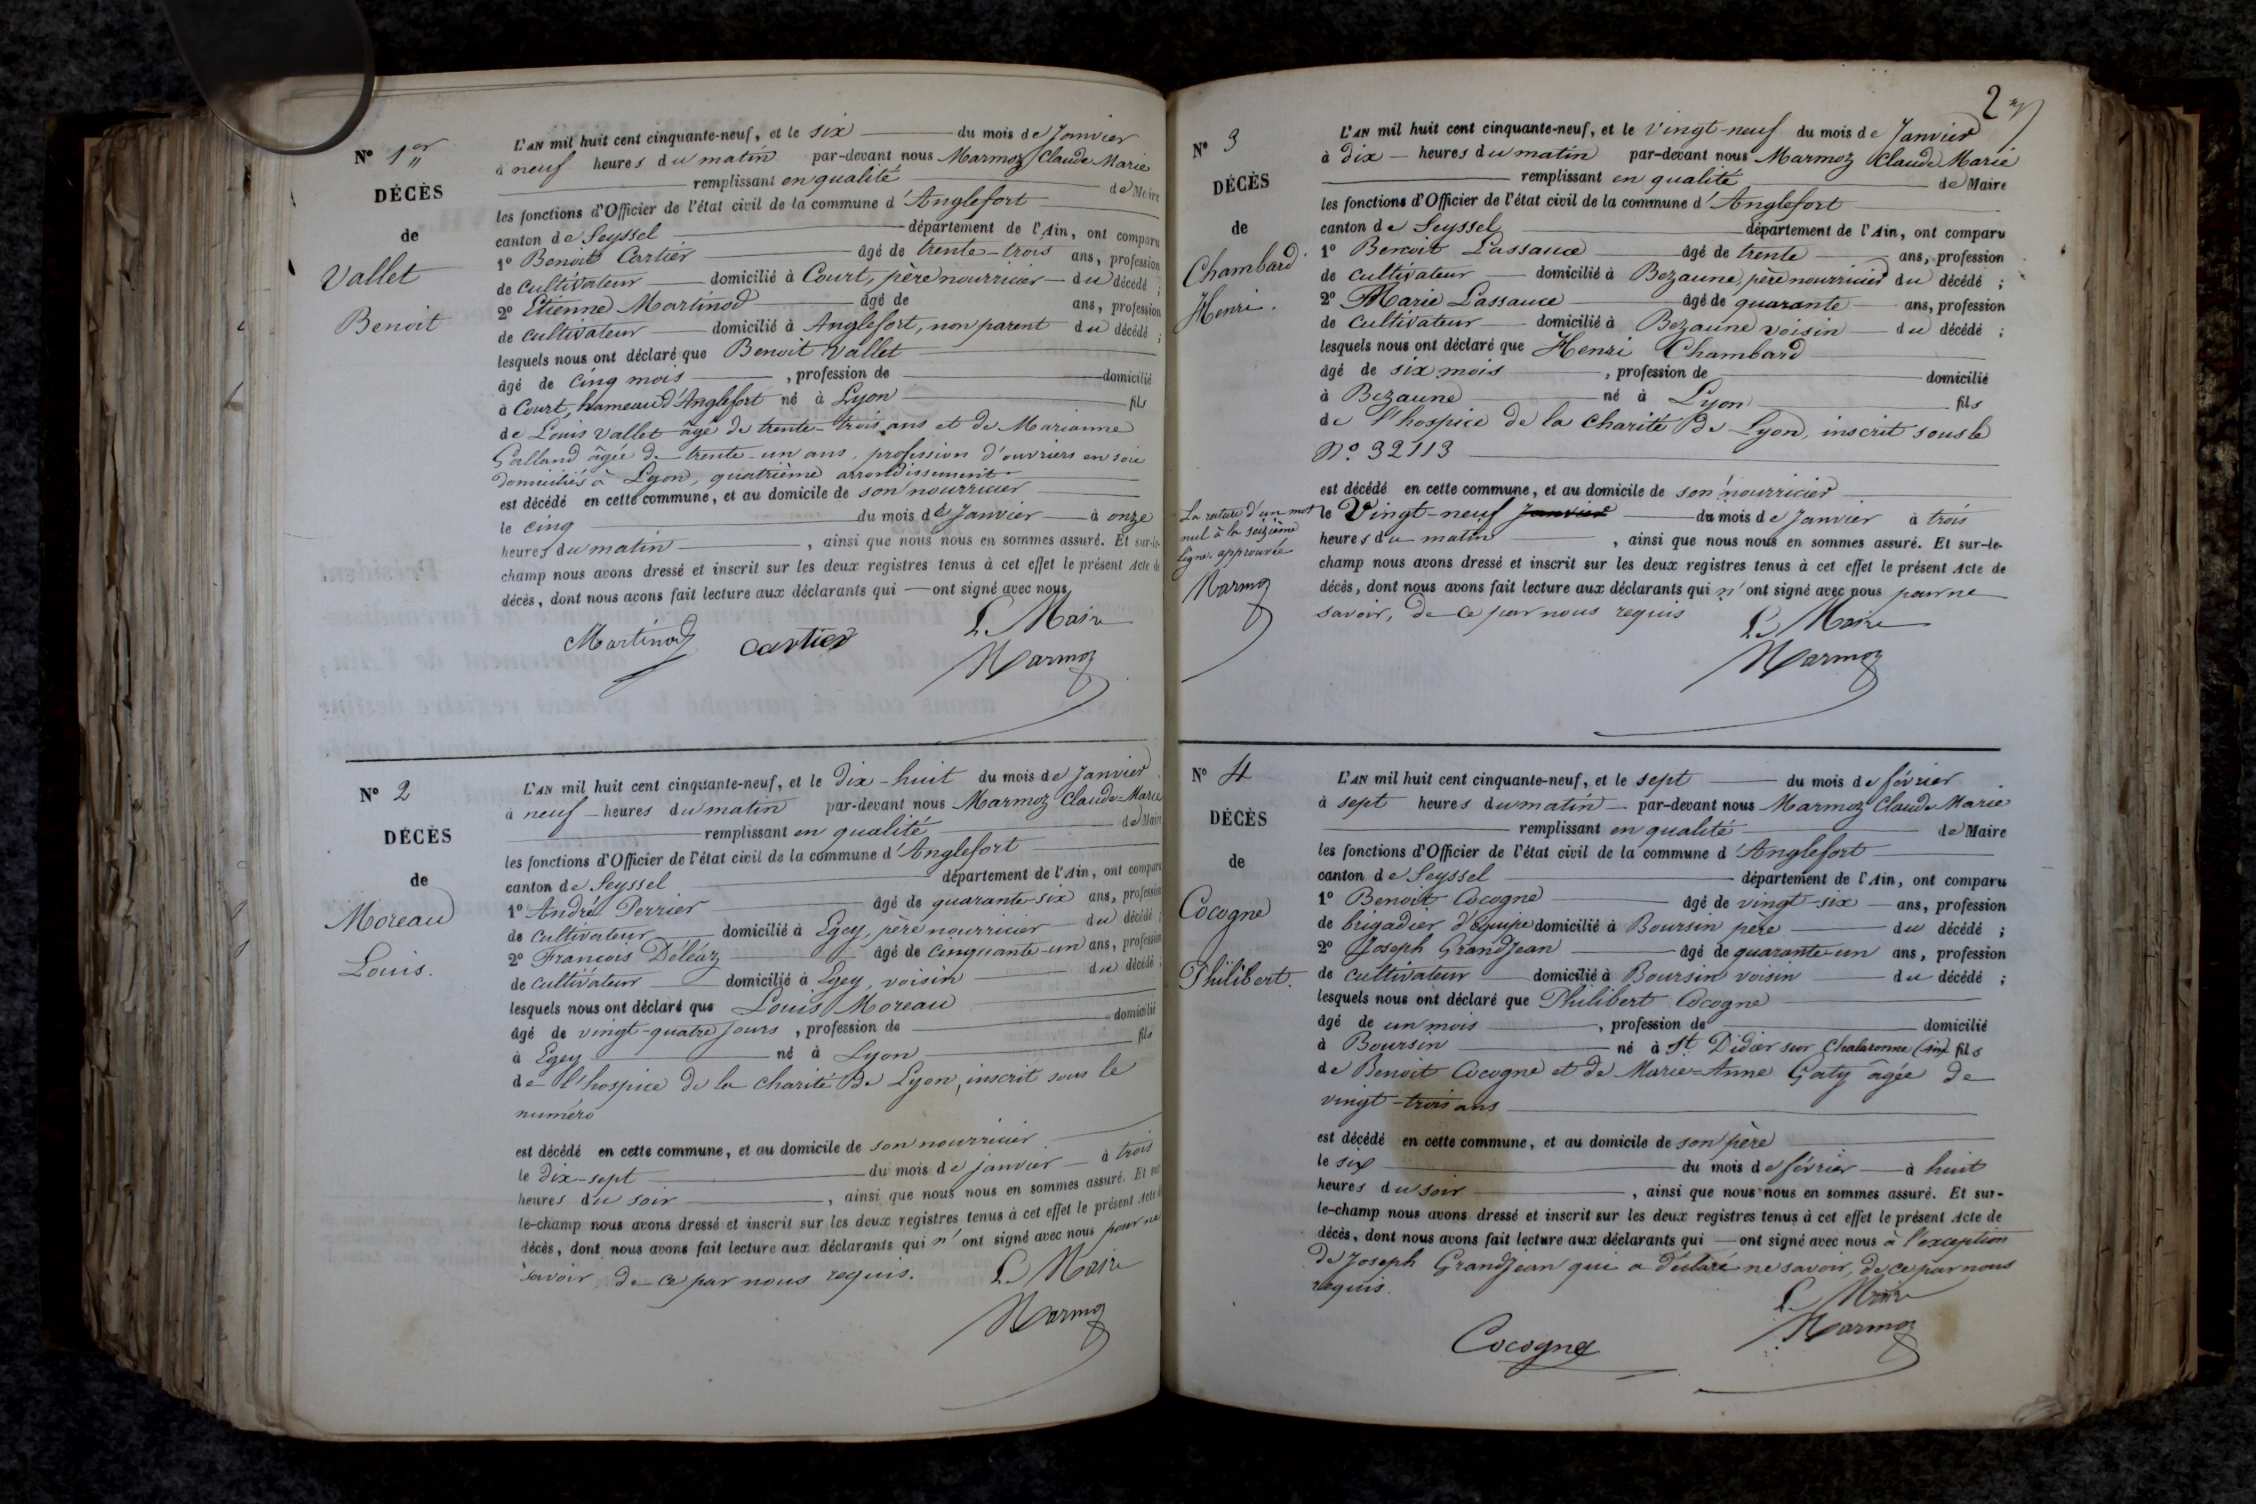 N° 1er
DÉCÈS
de
Vallet
Benoit
L'AN mil huit cent cinquante-neuf, et le six du mois de Janvier
à neuf heures du matin par-devant nous Marmoz Claude Marie
remplissant en qualité de Maire
les fonctions d'Officier de l'état civil de la commune d'Anglefort
canton de Seyssel département de l'Ain, ont comparu
1° Benoit Cartier âgé de trente-trois ans, profession
de cultivateur domicilié à Court, père nourricier du décédé ;
2° Etienne Martinod âgé de ans, profession
de cultivateur domicilié à Anglefort, non parent du décédé ;
lesquels nous ont déclaré que Benoit Vallet
âgé de cinq mois , profession de domicilié
à Court, hameau d'Anglefort né à Lyon fils
de Louis Vallet âgé de trente-trois ans et de Marianne
Galland âgée de trente-un ans, profession d'ouvriers en soie
domiciliés à Lyon, quatrième arrondissement
est décédé en cette commune, et au domicile de son nourricier
le cinq du mois de Janvier à onze
heures du matin , ainsi que nous nous en sommes assuré. Et sur-le-
champ nous avons dressé et inscrit sur les deux registres tenus à cet effet le présent Acte de
décès, dont nous avons fait lecture aux déclarants qui ont signé avec nous
Le Maire
Martinod Cartier Marmoz
N° 2
DÉCÈS
de
Moreau
Louis.
L'AN mil huit cent cinquante-neuf, et le dix-huit du mois de Janvier
à neuf heures du matin par-devant nous Marmoz Claude-Marie
remplissant en qualité de Maire
les fonctions d'Officier de l'état civil de la commune d'Anglefort
canton de Seyssel département de l'Ain, ont comparu
1° André Perrier âgé de quarante-six ans, profession
de cultivateur domicilié à Egey, père nourricier du décédé ;
2° François Déléaz âgé de cinquante-un ans, profession
de cultivateur domicilié à Egey, voisin du décédé ;
lesquels nous ont déclaré que Louis Moreau
âgé de vingt-quatre jours , profession de domicilié
à Egey né à Lyon fils
de l'hospice de la charité de Lyon, inscrit sous le
numéro
est décédé en cette commune, et au domicile de son nourricier
le dix-sept du mois de janvier à trois
heures du soir , ainsi que nous nous en sommes assuré. Et sur
le-champ nous avons dressé et inscrit sur les deux registres tenus à cet effet le présent Acte de
décès, dont nous avons fait lecture aux déclarants qui n'ont signé avec nous pour ne
savoir, de ce par nous requis.
Le Maire
Marmoz
2
N° 3
DÉCÈS
de
Chambard
Henri.
L'AN mil huit cent cinquante-neuf, et le vingt-neuf du mois de Janvier
à dix heures du matin par-devant nous Marmoz Claude Marie
remplissant en qualité de Maire
les fonctions d'Officier de l'état civil de la commune d'Anglefort
canton de Seyssel département de l'Ain, ont comparu
1° Benoit Lassauce âgé de trente ans, profession
de cultivateur domicilié à Bezaune, père nourricier du décédé ;
2° Marie Lassauce âgé de quarante ans, profession
de cultivateur domicilié à Bezaune voisin du décédé ;
lesquels nous ont déclaré que Henri Chambard
âgé de six mois , profession de domicilié
à Bezaune né à Lyon fils
de l'hospice de la charité de Lyon, inscrit sous le
N° 32113
est décédé en cette commune, et au domicile de son nourricier
le Vingt-neuf Janvier du mois de Janvier à trois
heures du matin , ainsi que nous nous en sommes assuré. Et sur-le-
champ nous avons dressé et inscrit sur les deux registres tenus à cet effet le présent Acte de
décès, dont nous avons fait lecture aux déclarants qui n'ont signé avec nous pour ne
savoir, de ce par nous requis
Le Maire
Marmoz
La rature d'un mot
nul à la seizième
ligne approuvée
Marmoz
N° 4
DÉCÈS
de
Cocogne
Philibert.
L'AN mil huit cent cinquante-neuf, et le sept du mois de février
à sept heures du matin par-devant nous Marmoz Claude Marie
remplissant en qualité de Maire
les fonctions d'Officier de l'état civil de la commune d'Anglefort
canton de Seyssel département de l'Ain, ont comparu
1° Benoit Cocogne âgé de vingt-six ans, profession
de brigadier d'équipe domicilié à Boursin père du décédé ;
2° Joseph Grandjean âgé de quarante-un ans, profession
de cultivateur domicilié à Boursin voisin du décédé ;
lesquels nous ont déclaré que Philibert Cocogne
âgé de un mois , profession de domicilié
à Boursin né à St Didier sur Chalaronne (ain) fils
de Benoit Cocogne et de Marie-Anne Gaty âgée de
vingt-trois ans
est décédé en cette commune, et au domicile de son père
le six du mois de février à huit
heures du soir , ainsi que nous nous en sommes assuré. Et sur-
le-champ nous avons dressé et inscrit sur les deux registres tenus à cet effet le présent Acte de
décès, dont nous avons fait lecture aux déclarants qui ont signé avec nous à l'exception
de Joseph Grandjean qui a déclaré ne savoir, de ce par nous
requis.
Le Maire
Cocogne Marmoz